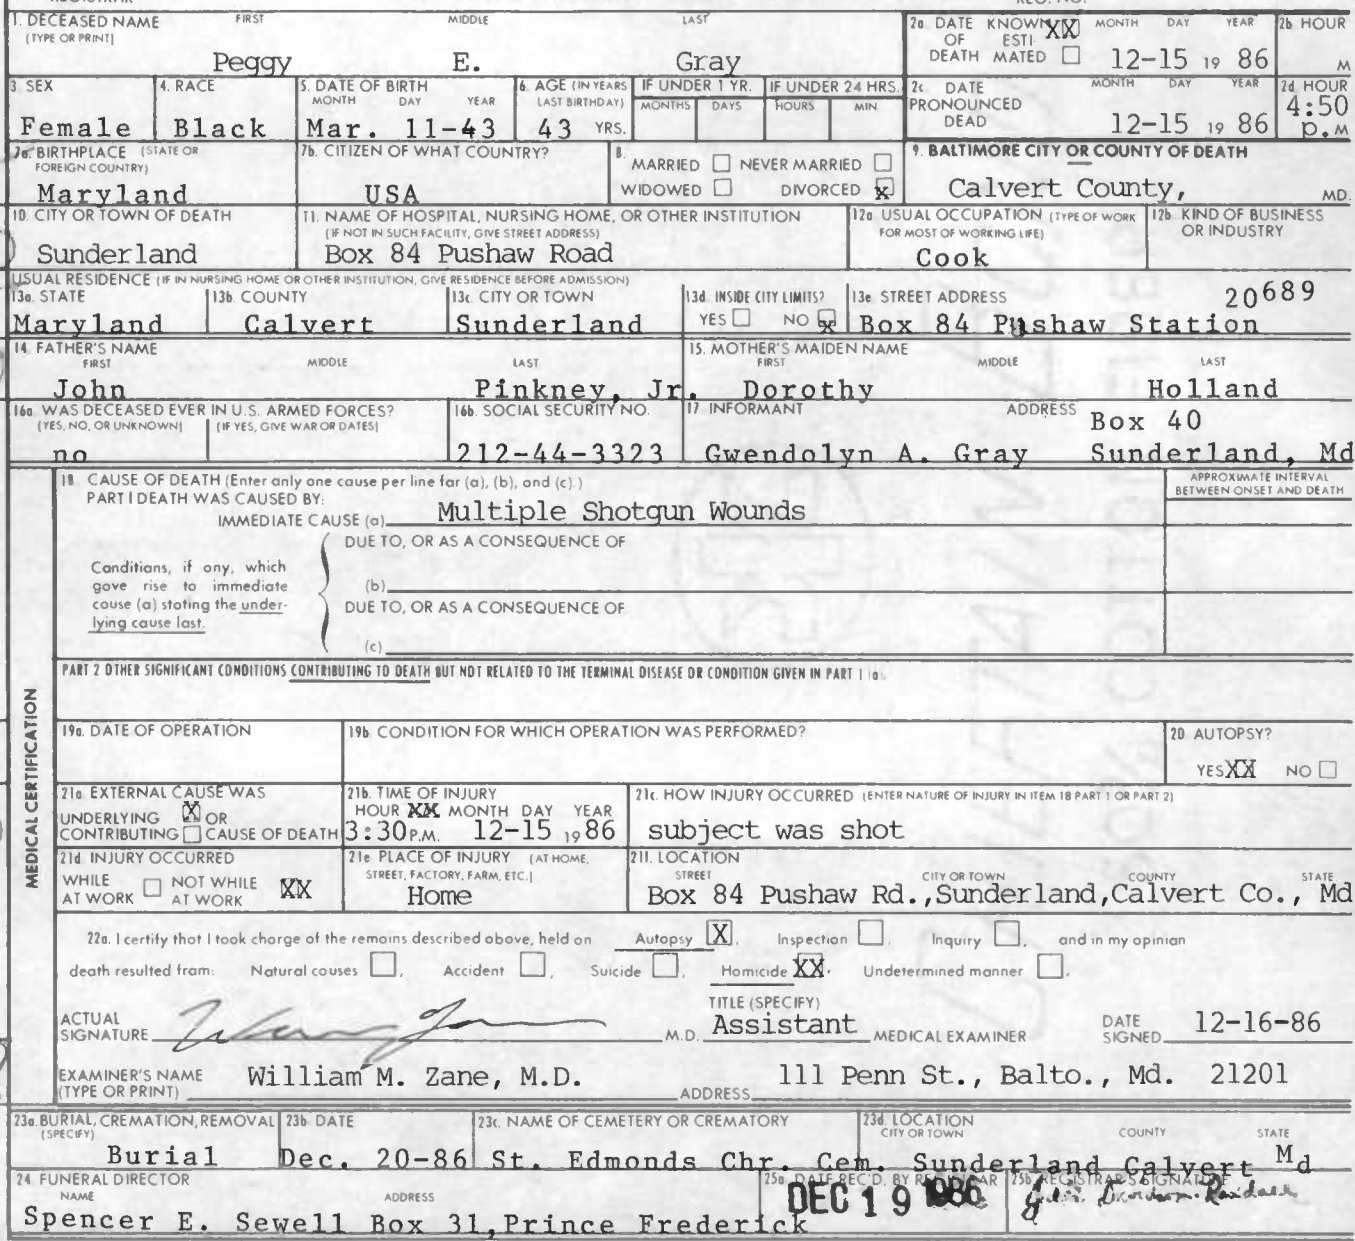 1. DECEASED NAME FIRST MIDDLE LAST
(TYPE OR PRINT)
Peggy E. Gray
2a. DATE KNOWN XX MONTH DAY YEAR
OF ESTI-
DEATH MATED 12-15 19 86
2b. HOUR
M
3. SEX
Female
4. RACE
Black
5. DATE OF BIRTH
MONTH DAY YEAR
Mar. 11-43
6. AGE (IN YEARS
LAST BIRTHDAY)
43 YRS.
IF UNDER 1 YR.
MONTHS DAYS
IF UNDER 24 HRS.
HOURS MIN
2c. DATE MONTH DAY YEAR
PRONOUNCED
DEAD 12-15 19 86
2d. HOUR
4:50
p.M
7a. BIRTHPLACE (STATE OR
FOREIGN COUNTRY)
Maryland
7b. CITIZEN OF WHAT COUNTRY?
USA
8.
MARRIED NEVER MARRIED
WIDOWED DIVORCED X
9. BALTIMORE CITY OR COUNTY OF DEATH
Calvert County, MD.
10. CITY OR TOWN OF DEATH
Sunderland
11. NAME OF HOSPITAL, NURSING HOME, OR OTHER INSTITUTION
(IF NOT IN SUCH FACILITY, GIVE STREET ADDRESS)
Box 84 Pushaw Road
12a. USUAL OCCUPATION (TYPE OF WORK
FOR MOST OF WORKING LIFE)
Cook
12b. KIND OF BUSINESS
OR INDUSTRY
USUAL RESIDENCE (IF IN NURSING HOME OR OTHER INSTITUTION, GIVE RESIDENCE BEFORE ADMISSION)
13a. STATE
Maryland
13b. COUNTY
Calvert
13c. CITY OR TOWN
Sunderland
13d. INSIDE CITY LIMITS?
YES NO X
13e. STREET ADDRESS 20689
Box 84 Pushaw Station
14. FATHER'S NAME
FIRST MIDDLE LAST
John Pinkney, Jr.
15. MOTHER'S MAIDEN NAME
FIRST MIDDLE LAST
Dorothy Holland
16a. WAS DECEASED EVER IN U.S. ARMED FORCES?
(YES, NO, OR UNKNOWN) (IF YES, GIVE WAR OR DATES)
no
16b. SOCIAL SECURITY NO.
212-44-3323
17. INFORMANT ADDRESS Box 40
Gwendolyn A. Gray Sunderland, Md
MEDICAL CERTIFICATION
18. CAUSE OF DEATH (Enter only one cause per line for (a), (b), and (c).)
PART I DEATH WAS CAUSED BY:
IMMEDIATE CAUSE (a) Multiple Shotgun Wounds
APPROXIMATE INTERVAL
BETWEEN ONSET AND DEATH
DUE TO, OR AS A CONSEQUENCE OF
Conditions, if any, which
gave rise to immediate
cause (a) stating the under-
lying cause last.
(b)
DUE TO, OR AS A CONSEQUENCE OF
(c)
PART 2 OTHER SIGNIFICANT CONDITIONS CONTRIBUTING TO DEATH BUT NOT RELATED TO THE TERMINAL DISEASE OR CONDITION GIVEN IN PART 1 (a)
19a. DATE OF OPERATION
19b. CONDITION FOR WHICH OPERATION WAS PERFORMED?
20. AUTOPSY?
YES XX NO
21a. EXTERNAL CAUSE WAS
UNDERLYING X OR
CONTRIBUTING CAUSE OF DEATH
21b. TIME OF INJURY
HOUR XX MONTH DAY YEAR
3:30 P.M. 12-15 19 86
21c. HOW INJURY OCCURRED (ENTER NATURE OF INJURY IN ITEM 18 PART 1 OR PART 2)
subject was shot
21d. INJURY OCCURRED
WHILE NOT WHILE XX
AT WORK AT WORK
21e. PLACE OF INJURY (AT HOME,
STREET, FACTORY, FARM, ETC.)
Home
21f. LOCATION
STREET CITY OR TOWN COUNTY STATE
Box 84 Pushaw Rd.,Sunderland,Calvert Co., Md
22a. I certify that I took charge of the remains described above, held on Autopsy X, Inspection, Inquiry, and in my opinion
death resulted from: Natural causes, Accident, Suicide, Homicide XX. Undetermined manner.
ACTUAL
SIGNATURE M.D.
TITLE (SPECIFY)
Assistant MEDICAL EXAMINER
DATE
SIGNED 12-16-86
EXAMINER'S NAME
(TYPE OR PRINT) William M. Zane, M.D. ADDRESS 111 Penn St., Balto., Md. 21201
23a. BURIAL, CREMATION, REMOVAL
(SPECIFY)
Burial
23b. DATE
Dec. 20-86
23c. NAME OF CEMETERY OR CREMATORY
St. Edmonds Chr. Cem.
23d. LOCATION
CITY OR TOWN COUNTY STATE
Sunderland Calvert Md
24. FUNERAL DIRECTOR
NAME ADDRESS
Spencer E. Sewell Box 31,Prince Frederick
25a. DATE REC'D. BY REGISTRAR
DEC 19 1986
25b. REGISTRAR'S SIGNATURE